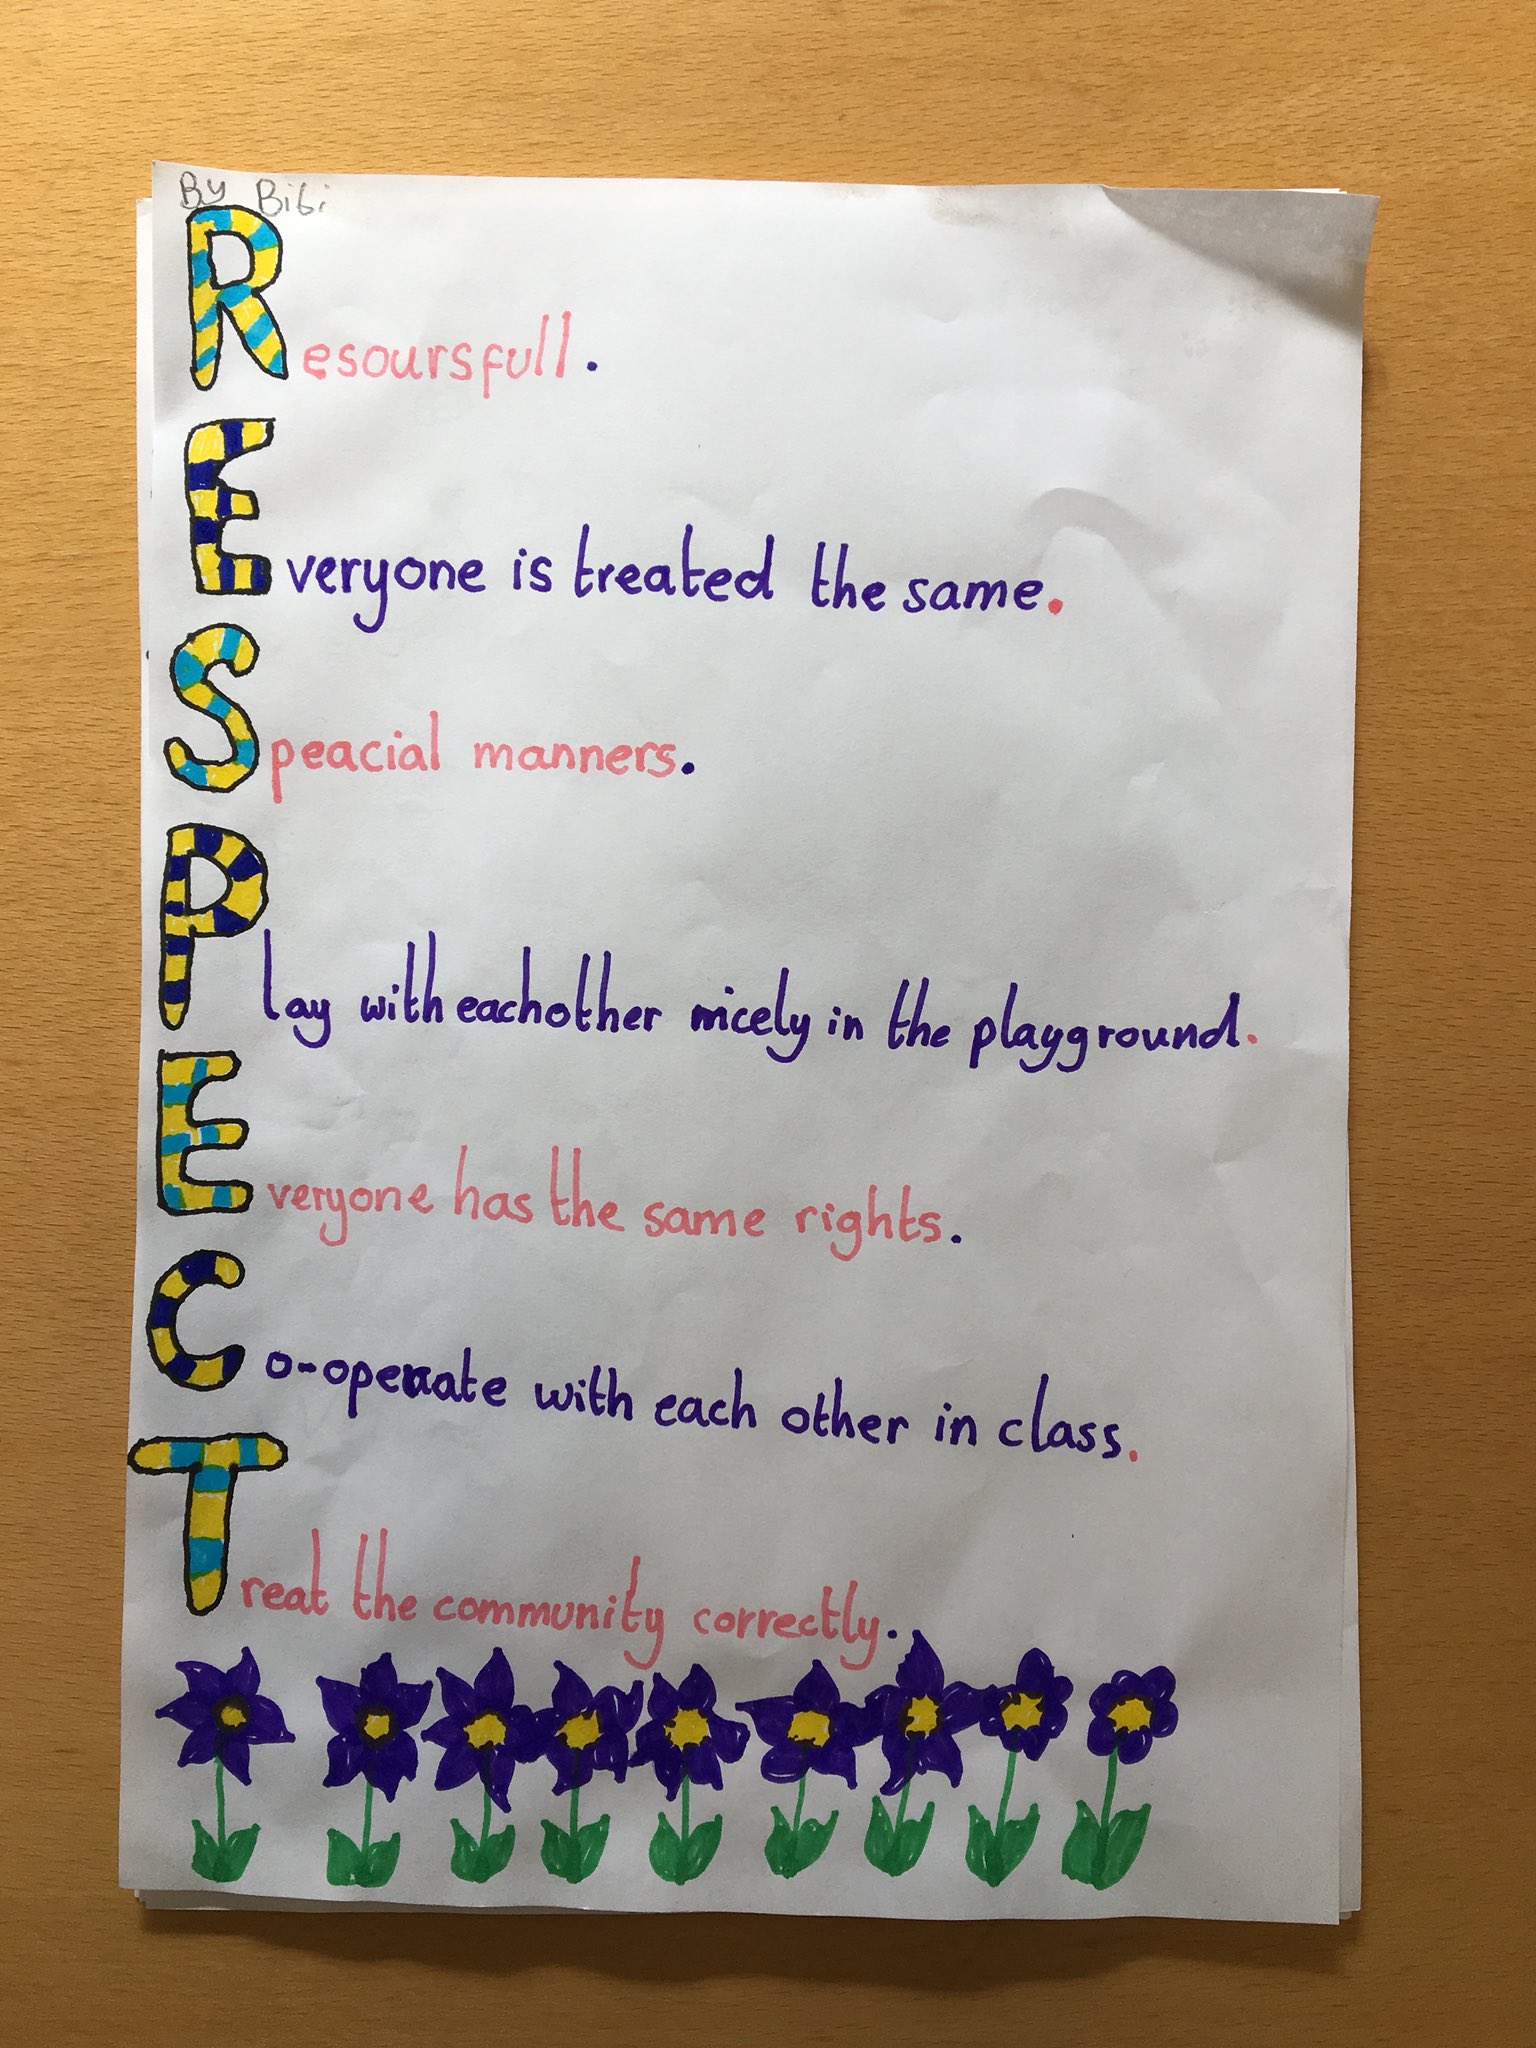 By Bibi
Resoursfull.
Everyone is treated the same.
Speacial manners.
Play with eachother nicely in the playground.
Everyone has the same rights.
Co-operate with each other in class.
Treat the community correctly.